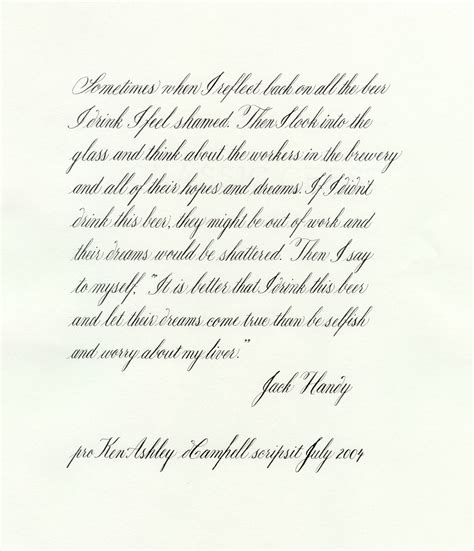 Sometimes when I reflect back on all the beer
I drink I feel shamed. Then I look into the
glass and think about the workers in the brewery
and all of their hopes and dreams. If I didn't
drink this beer, they might be out of work and
their dreams would be shattered. Then I say
to myself. "It is better that I drink this beer
and let their dreams come true than be selfish
and worry about my liver."
Jack Handy
pro Ken Ashley dCampell scripsit July 2004